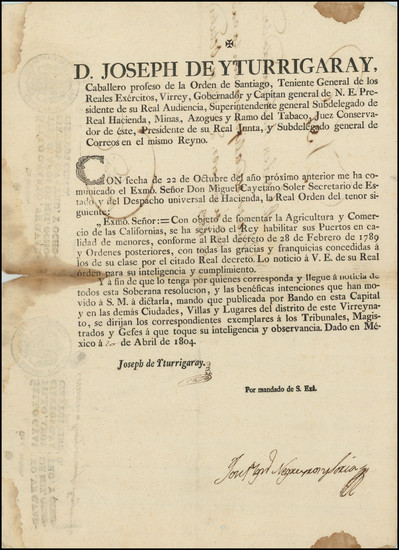 D. JOSEPH DE YTURRIGARAY,
Caballero profeso de la Orden de Santiago, Teniente General de los
Reales Exércitos, Virrey, Gobernador y Capitan general de N. E. Pre-
sidente de su Real Audiencia, Superintendente general Subdelegado de
Real Hacienda, Minas, Azogues y Ramo del Tabaco, Juez Conserva-
dor de éste, Presidente de su Real Junta, y Subdelegado general de
Correos en el mismo Reyno.
CON fecha de 22 de Octubre del año próximo anterior me ha co-
municado el Exmó. Señor Don Miguel Cayetano Soler Secretario de Es-
tado y del Despacho universal de Hacienda, la Real Orden del tenor si-
guiente:
„Exmó. Señor:=Con objeto de fomentar la Agricultura y Comer-
cio de las Californias, se ha servido el Rey habilitar sus Puertos en ca-
lidad de menores, conforme al Real decreto de 28 de Febrero de 1789
y Ordenes posteriores, con todas las gracias y franquicias concedidas á
los de su clase por el citado Real decreto. Lo noticio á V. E. de su Real
órden para su inteligencia y cumplimiento.
Y á fin de que lo tenga por quienes corresponda y llegue á noticia de
todos esta Soberana resolucion, y las benéficas intenciones que han mo-
vido á S. M. á dictarla, mando que publicada por Bando en esta Capital
y en las demás Ciudades, Villas y Lugares del distrito de este Virreyna-
to, se dirijan los correspondientes exemplares á los Tribunales, Magis-
trados y Gefes á que toque su inteligencia y observancia. Dado en Mé-
xico á de Abril de 1804.
Joseph de Yturrigaray.
Por mandado de S. Exâ.